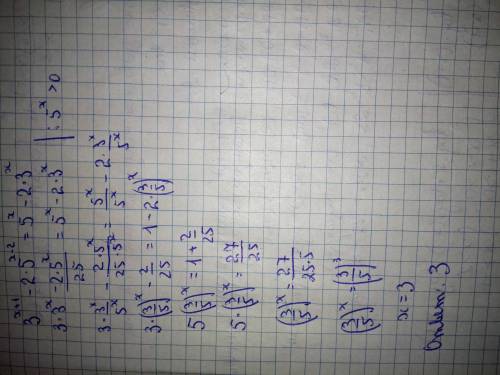 3^{x+1} - 2·5^{x-2} = 5^x - 2·3^x
3·3^x - \frac{2·5^x}{25} = 5^x - 2·3^x | : 5^x > 0
3·\frac{3^x}{5^x} - \frac{2·5^x}{25·5^x} = \frac{5^x}{5^x} - 2·\frac{3^x}{5^x}
3·(\frac{3}{5})^x - \frac{2}{25} = 1 - 2·(\frac{3}{5})^x
5(\frac{3}{5})^x = 1 + \frac{2}{25}
5·(\frac{3}{5})^x = \frac{27}{25}
(\frac{3}{5})^x = \frac{27}{25·5}
(\frac{3}{5})^x = (\frac{3}{5})^3
x = 3
Ответ: 3